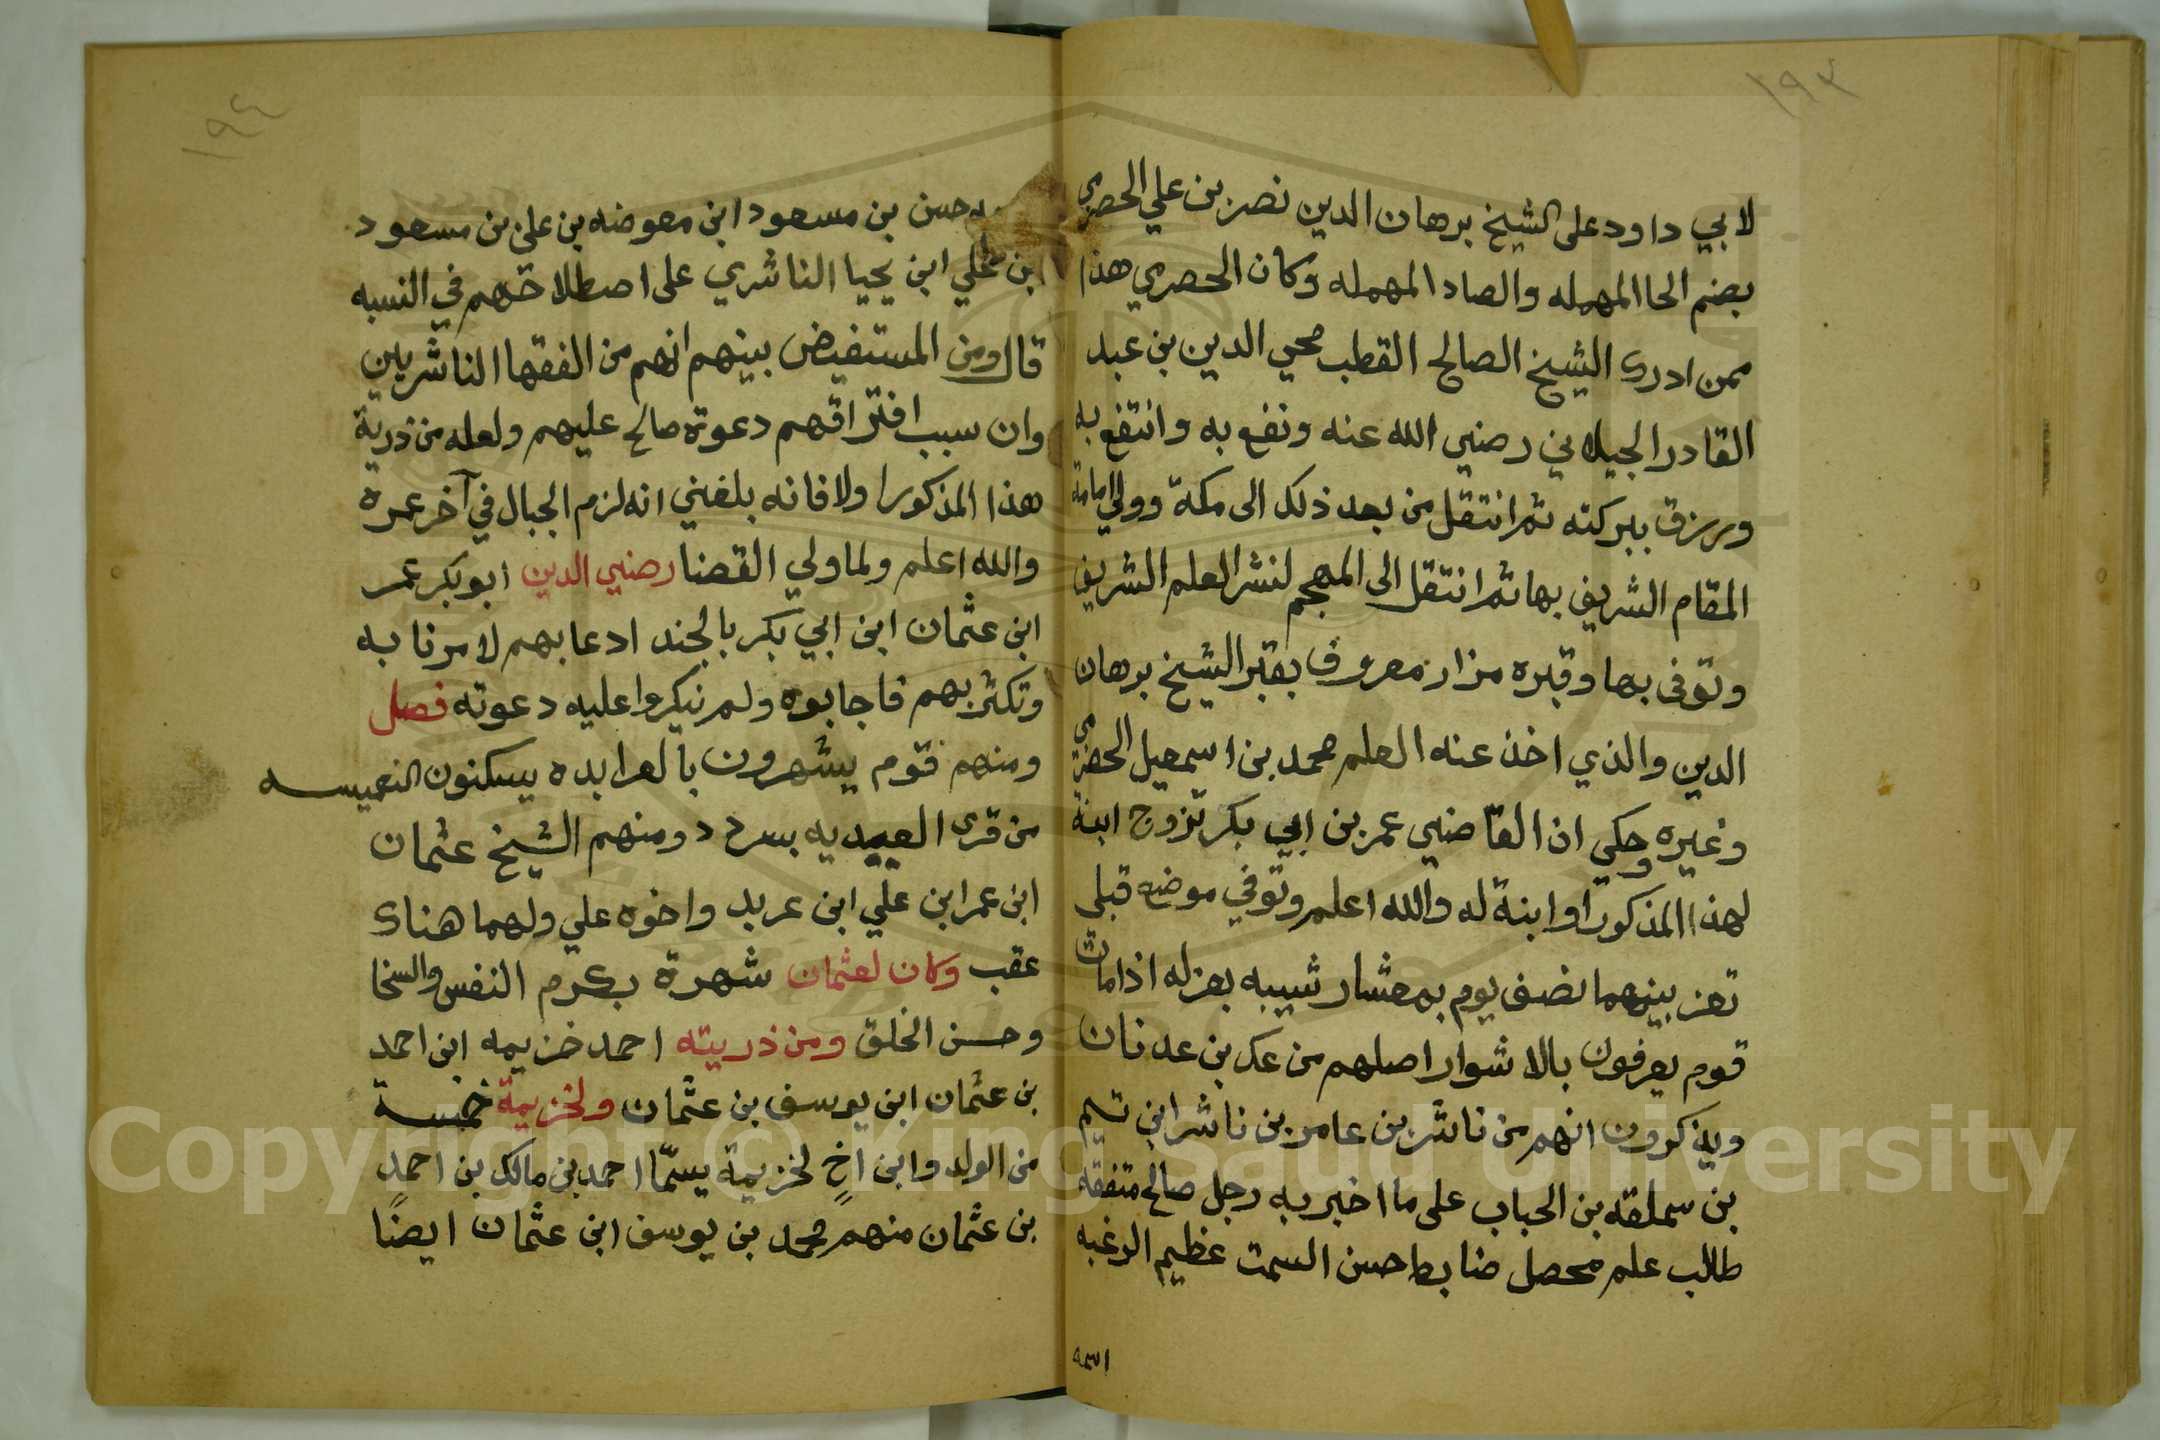 ١٩٣
لابي داود على الشيخ برهان الدين نصر بن علي الحصري
بضم الحا المهمله والصاد المهمله وكان الحصري هذا
ممن ادرك الشيخ الصالح القطب محي الدين بن عبد
القادر الجيلاني رضي الله عنه ونفع به وانتفع به
ورزق ببركته ثم انتقل من بعد ذلك الى مكة وولي امامة
المقام الشريف بها ثم انتقل الى المهجم لنشر العلم الشريف
وتوفى بها وقبره مزار معروف بقبر الشيخ برهان
الدين والذي اخذ عنه العلم محمد بن اسمعيل الحضرمي
وغيره وحكي ان القاضي عمر بن ابي بكر تزوج ابنة
لهذا المذكور او ابنة له والله اعلم وتوفي موضه قبلي
تعز بينهما نصف يوم بمعشار شيبه بعزله اذامات
قوم يعرفون بالاشوار اصلهم من عك بن عدنان
ويذكرون انهم من ناشر بن عامر بن ناشر ابن تيم
بن سملقه بن الحباب على ما اخبر به رجل صالح متفقه
طالب علم محصل ضابط حسن السمت عظيم الرغبه
اسمه
١٩٤
حسن بن مسعود ابن معوضه بن على بن مسعود
ابن علي ابن يحيا الناشري على اصطلاحهم في النسبه
قال ومن المستفيض بينهم انهم من الفقها الناشريين
وان سبب افتراقهم دعوة صالح عليهم ولعله من ذرية
هذا المذكور اولا فانه بلغني انه لزم الجبال في آخر عمره
والله اعلم ولما ولي القضا رضي الدين ابو بكر عمر
ابن عثمان ابن ابي بكر بالجند ادعا بهم لامر نابه
وتكثر بهم فاجابوه ولم ينكروا عليه دعوته فصل
ومنهم قوم يشهرون بالعرابده يسكنون النعميسه
من قرى العبيديه بسردد ومنهم الشيخ عثمان
ابن عمر ابن علي ابن عربد واخوه علي ولهما هناك
عقب وكان لعثمان شهرة بكرم النفس والسخا
وحسن الخلق ومن ذريته احمد خزيمه ابن احمد
بن عثمان ابن يوسف بن عثمان ولخزيمة خمسة
من الولد وابن اخٍ لخزيمة يسمّا احمد بن مالك بن احمد
بن عثمان منهم محمد بن يوسف ابن عثمان ايضًا
Copyright © King Saud University